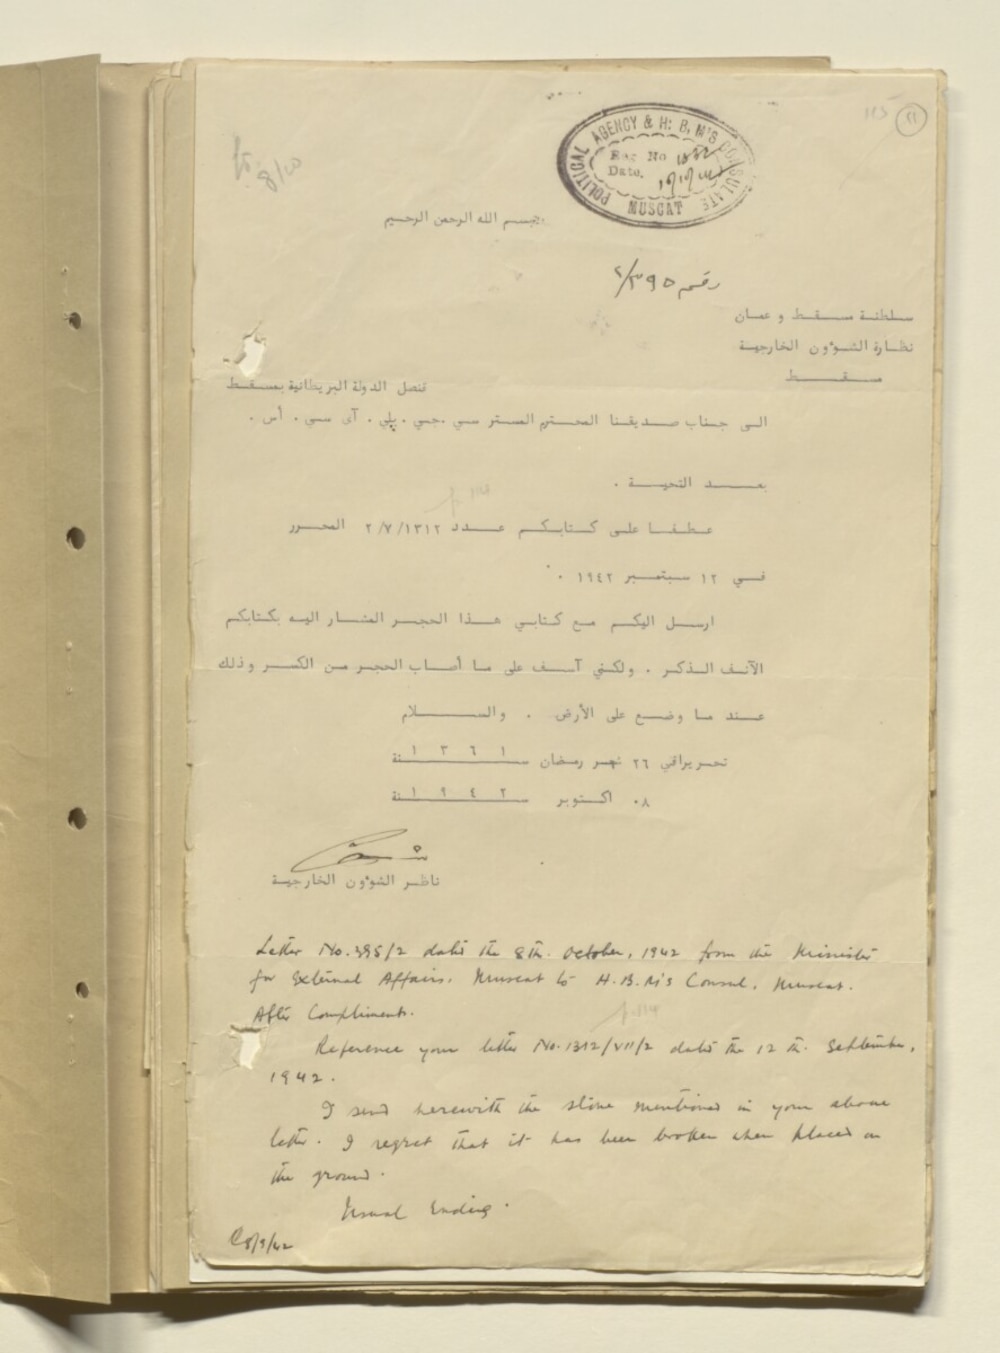 115
١١
POLITICAL AGENCY & H: B, M'S CONSULATE
Reg No
Date.
MUSCAT
8/10
بسم الله الرحمن الرحيم
رقم ٢/٣٩٥
سلطنة مسقط و عمان
نظارة الشوؤن الخارجية
مسقط
قنصل الدولة البريطانية بمسقط
الى جناب صديقنا المحترم المستر سي .جي . پلي . آى سي . أس .
بعد التحية .
p. 114
عطفا على كتابكم عدد ٢/٧/١٣١٢ المحرر
في ١٢ سبتمبر ١٩٤٢ .
ارسل اليكم مع كتابي هذا الحجر المشار اليه بكتابكم
الآنف الذكر . ولكني آسف على ما أصاب الحجر من الكسر وذلك
عند ما وضع على الأرض . والسلام
تحريرافي ٢٦ شهر رمضان سنة ١٣٦١
٠٨ اكتوبر سنة ١٩٤٢
ناظر الشوؤن الخارجية
Letter No. 395/2 dated the 8th. October, 1942 from the Minister
for External Affairs, Muscat to H.B.M's Consul, Muscat.
After Compliments.
p.114
Reference your letter No. 1312/VII/2 dated the 12 th. September,
1942.
I send herewith the stone mentioned in your above
letter. I regret that it has been broken when placed on
the ground.
Usual Ending.
8/9/42